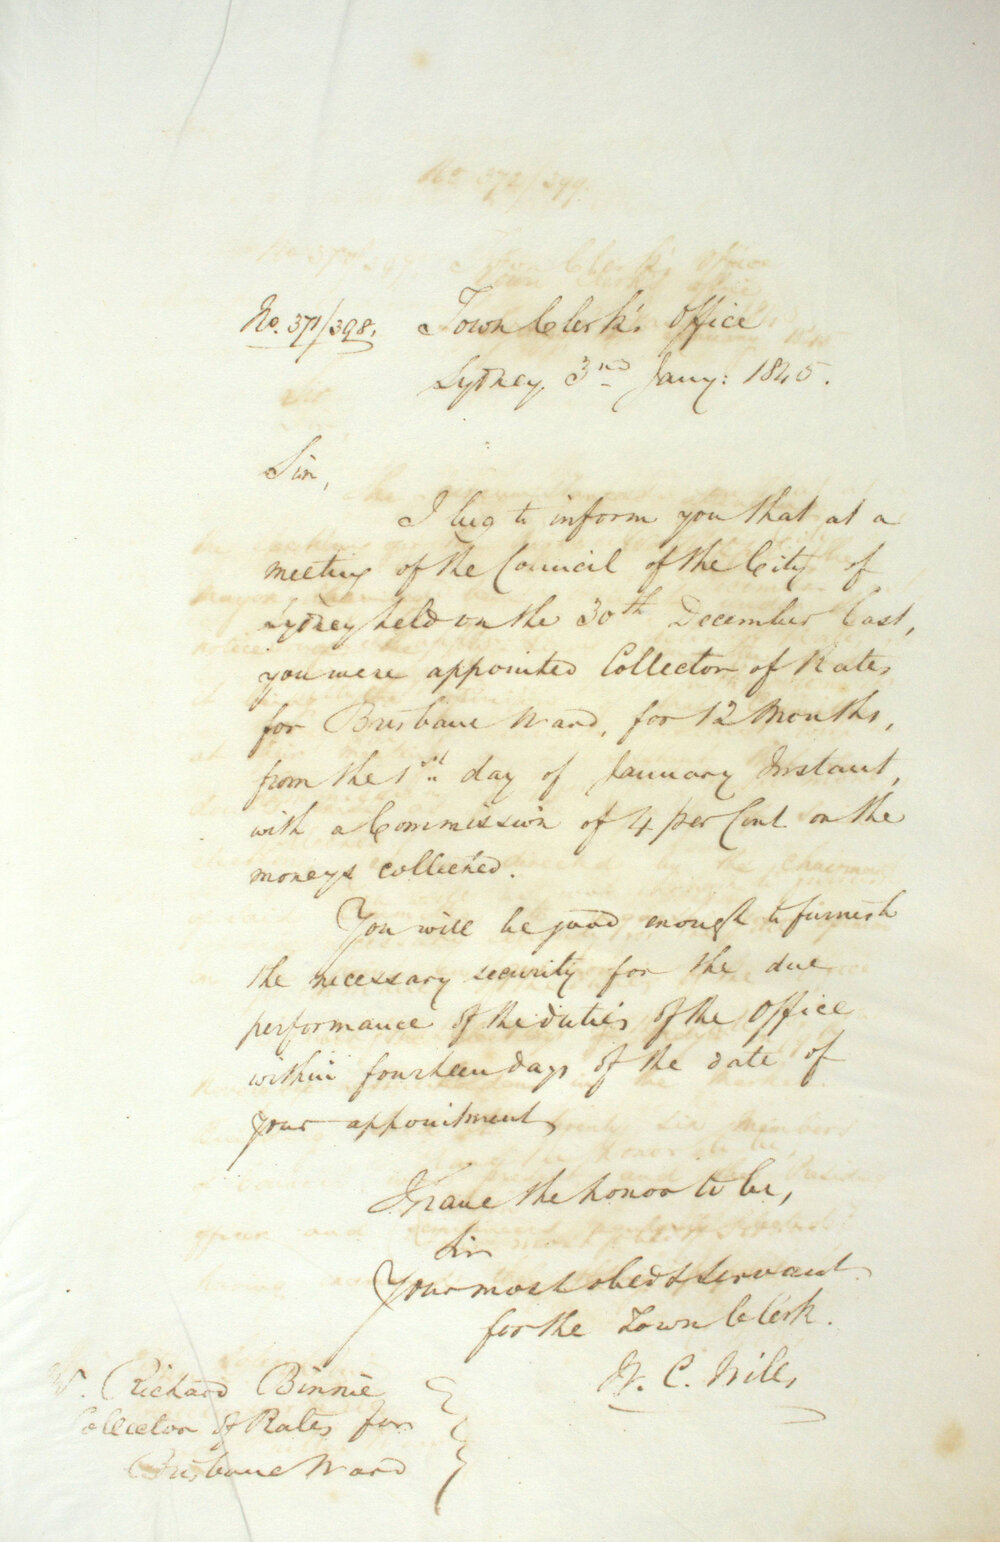 No. 371/398. Town Clerk's Office
Sydney, 3rd Jany: 1845.
Sir,
I beg to inform you that at a
meeting of the Council of the City of
Sydney held on the 30th December last,
you were appointed Collector of Rates
for Brisbane Ward, for 12 Months,
from the 1st day of January Instant,
with a Commission of 4 per Cent on the
moneys collected.
You will be good enough to furnish
the necessary security for the due
performance of the duties of the Office
within fourteen days of the date of
your appointment,
I have the honor to be,
Sir
Your most obedt servant
for the Town Clerk.
W. C. Wills
Mr. Richard Binnie
Collector of Rates for
Brisbane Ward